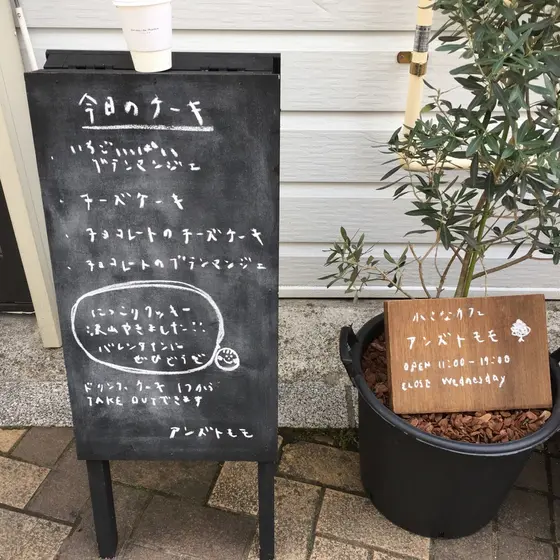 今日のケーキ
・いちごいっぱい
ブランマンジェ
・チーズケーキ
・チョコレートのチーズケーキ
・チョコレートのブランマンジェ
にっこりクッキー
沢山やきました!!
バレンタインに
ぜひどうぞ
ドリンク、ケーキ 1つから
TAKE OUTできます
アンズトモモ
小さなカフェ
アンズトモモ
OPEN 11:00-19:00
CLOSE Wednesday